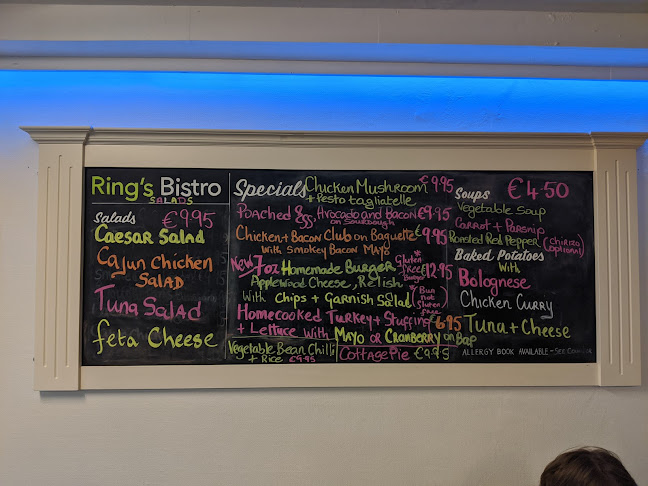 Ring's Bistro
SALADS
Salads €9.95
Caesar Salad
Cajun Chicken
Salad
Tuna Salad
feta Cheese
Specials Chicken Mushroom €9.95
+ Pesto tagliatelle
Poached Egg, Avocado and bacon €9.95
on Sourdough
Chicken + Bacon Club on Baguette €9.95
with Smokey Bacon Mayo
New 7oz Homemade Burger €12.95
Gluten
free
Burger
Applewood Cheese, Relish
With Chips + Garnish Salad
*(Bun
not
Gluten
free
Homecooked Turkey + Stuffing €6.95
+ Lettuce with Mayo or Cranberry on Bap
Vegetable Bean Chilli
+ Rice €9.95
Cottage Pie €9.95
Soups €4.50
Vegetable Soup
Carrot + Parsnip
Roasted Red Pepper (Chirizo
optional)
Baked Potatoes
With
Bolognese
Chicken Curry
Tuna + Cheese
ALLERGY BOOK AVAILABLE -